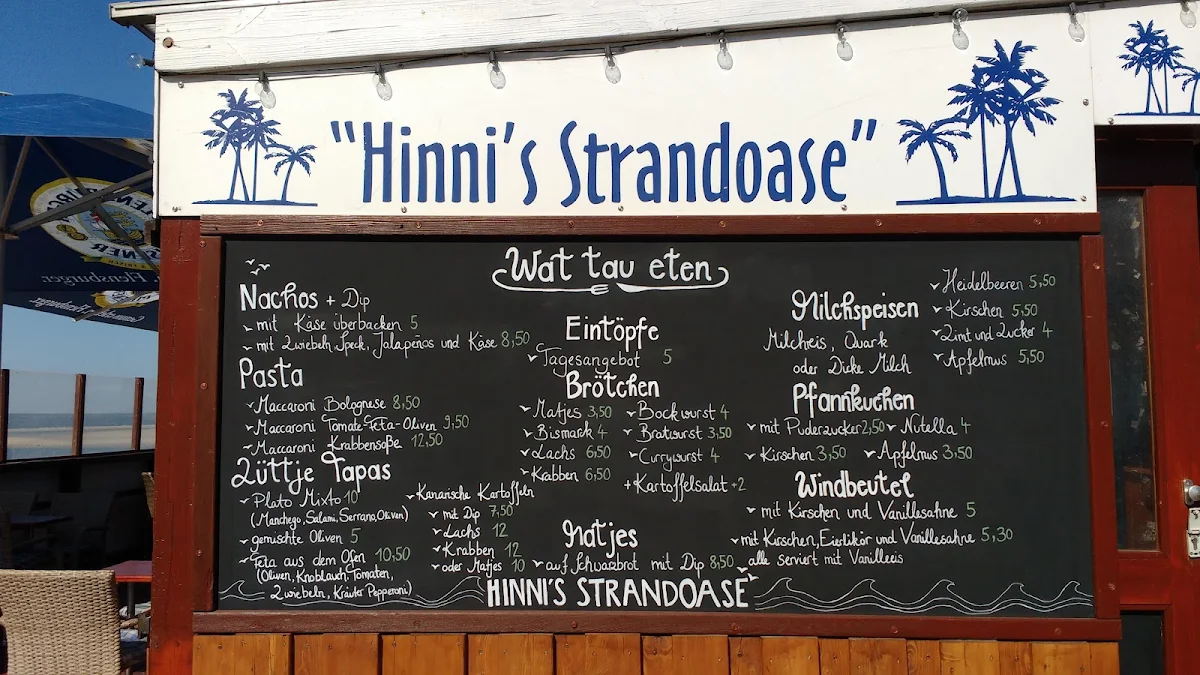 "Hinni's Strandoase"
Wat tau eten
Nachos + Dip
mit Käse überbacken 5
mit Zwiebeln, Speck, Jalapeños und Käse 8,50
Pasta
Maccaroni Bolognese 8,50
Maccaroni Tomate-Feta-Oliven 9,50
Maccaroni Krabbensoße 12,50
Lüttje Tapas
Plato Mixto 10
(Manchego, Salami, Serrano, Oliven)
gemischte Oliven 5
Feta aus dem Ofen 10,50
(Oliven, Knoblauch, Tomaten,
Zwiebeln, Kräuter Pepperoni)
Kanarische Kartoffeln
mit Dip 7,50
Lachs 12
Krabben 12
oder Matjes 10
Eintöpfe
Tagesangebot 5
Brötchen
Matjes 3,50
Bismark 4
Lachs 6,50
Krabben 6,50
Bockwurst 4
Bratwurst 3,50
Currywurst 4
+Kartoffelsalat +2
Matjes
auf Schwarzbrot mit Dip 8,50
Milchspeisen
Milchreis, Quark
oder Dicke Milch
Heidelbeeren 5,50
Kirschen 5,50
Zimt und Zucker 4
Apfelmus 5,50
Pfannkuchen
mit Puderzucker 2,50
Nutella 4
Kirschen 3,50
Apfelmus 3,50
Windbeutel
mit Kirschen und Vanillesahne 5
mit Kirschen, Eierlikör und Vanillesahne 5,30
alle serviert mit Vanilleeis
HINNI'S STRANDOASE
Flensburger